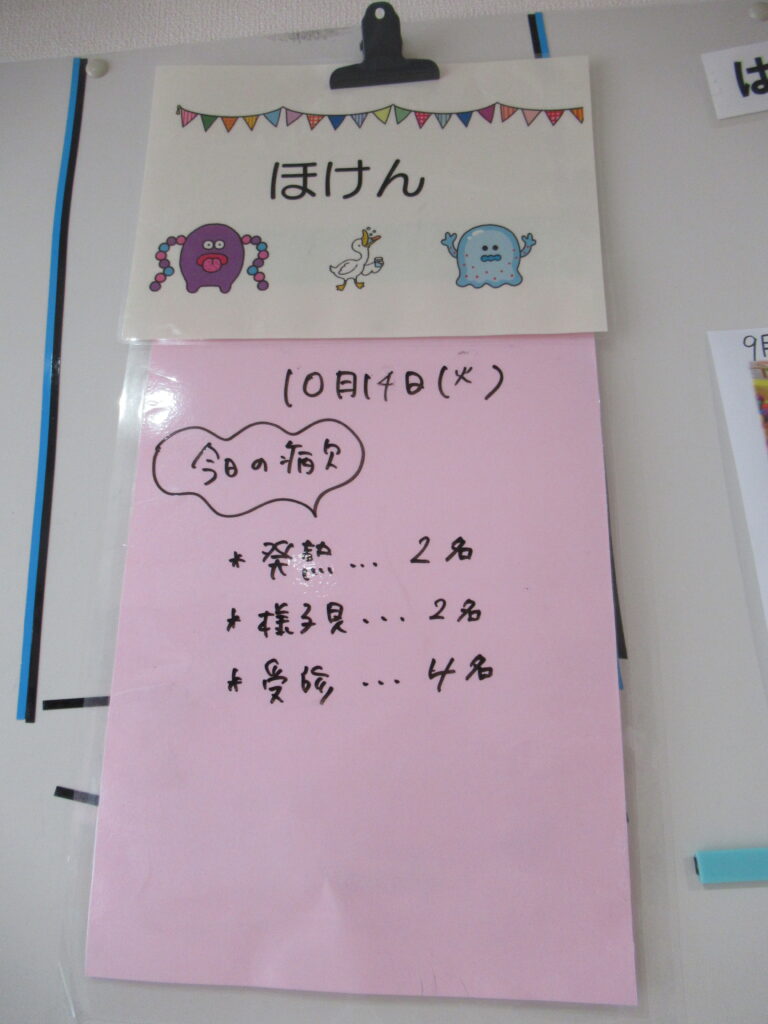 ほけん
10月14日(火)
今日の病欠
* 発熱... 2名
* 様子見... 2名
* 受診... 4名
は
9月